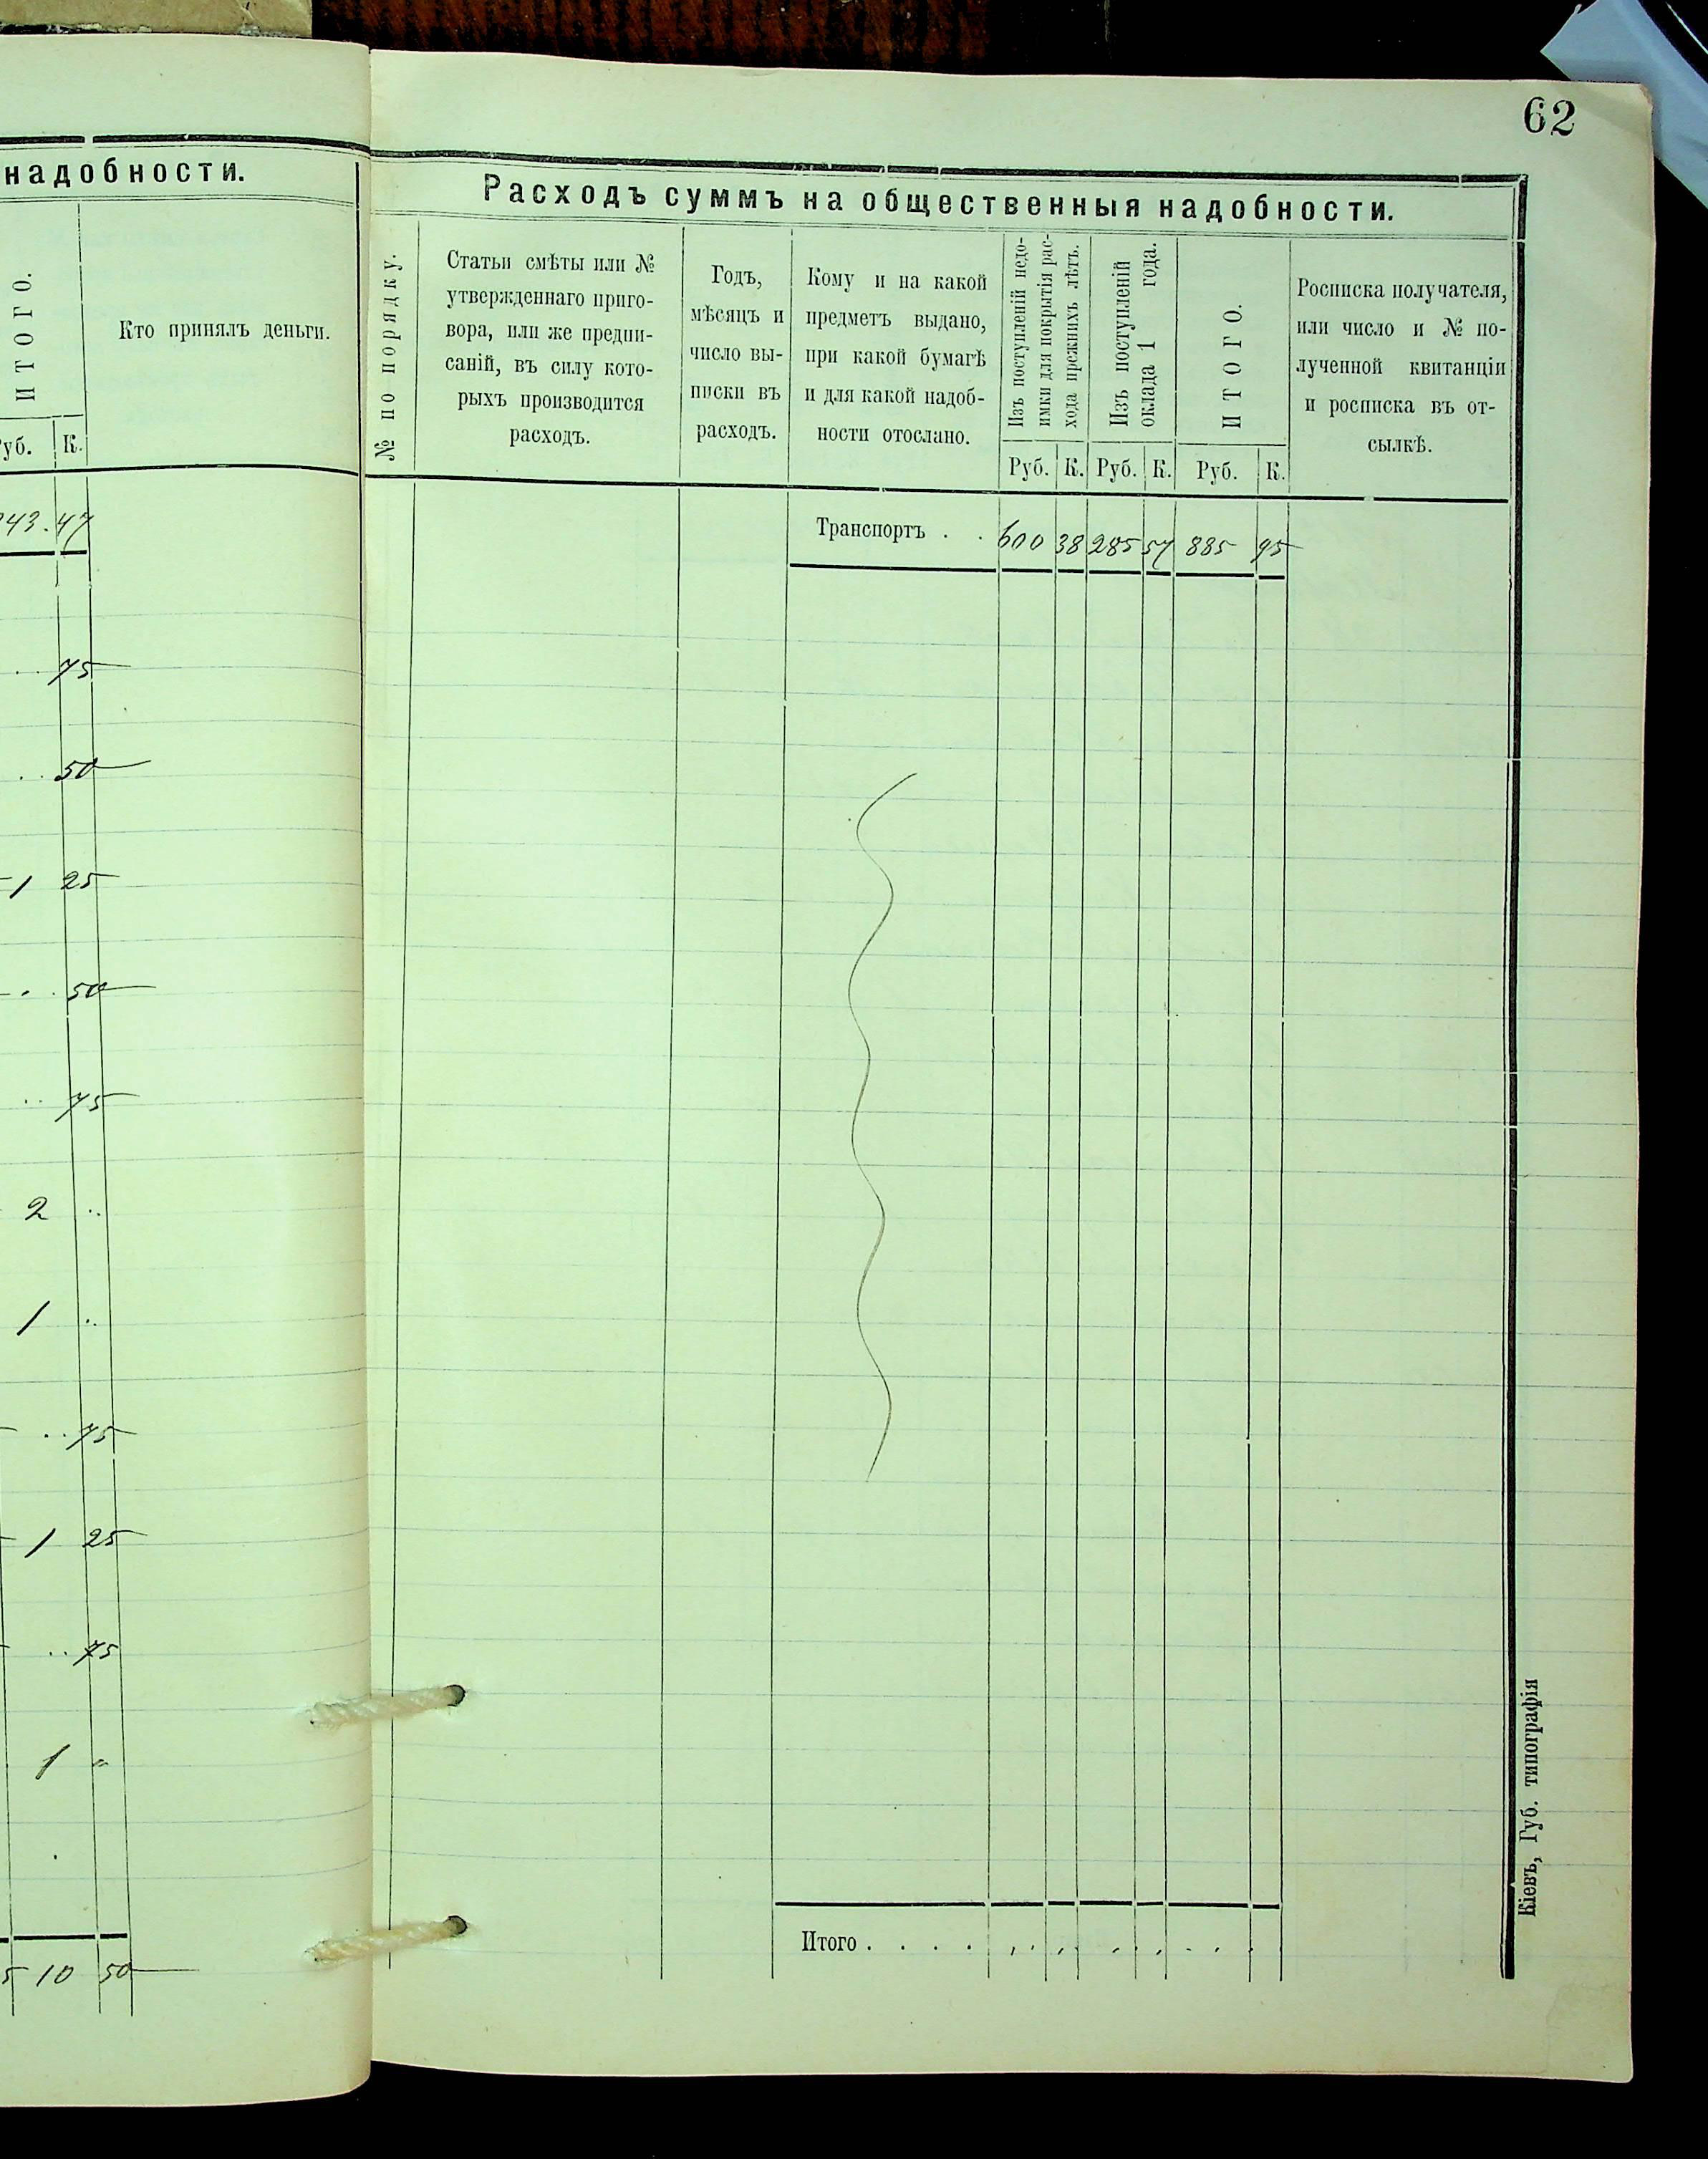 62
надобности.
ИТОГО.
Кто принялъ деньги.
Руб. К.
943. 47
.. 75
.. 50
1 25
. 50
.. 75
2 ..
1 ..
.. 75
1 25
.. 75
1 "
10 50
Расходъ суммъ на общественныя надобности.
№ по порядку.
Статьи смѣты или №
утвержденнаго приго-
вора, или же предпи-
саній, въ силу кото-
рыхъ производится
расходъ.
Годъ,
мѣсяцъ и
число вы-
писки въ
расходъ.
Кому и на какой
предметъ выдано,
при какой бумагѣ
и для какой надоб-
ности отослано.
Изъ поступленій недо-
имки для покрытія рас-
хода прежнихъ лѣтъ.
Изъ поступленій
оклада 1 года.
ИТОГО.
Росписка получателя,
или число и № по-
лученной квитанціи
и росписка въ от-
сылкѣ.
Руб. К. Руб. К. Руб. К.
Транспортъ . . 600 38 285 57 885 95
Итого . . . .
Кіевъ, Губ. типографія